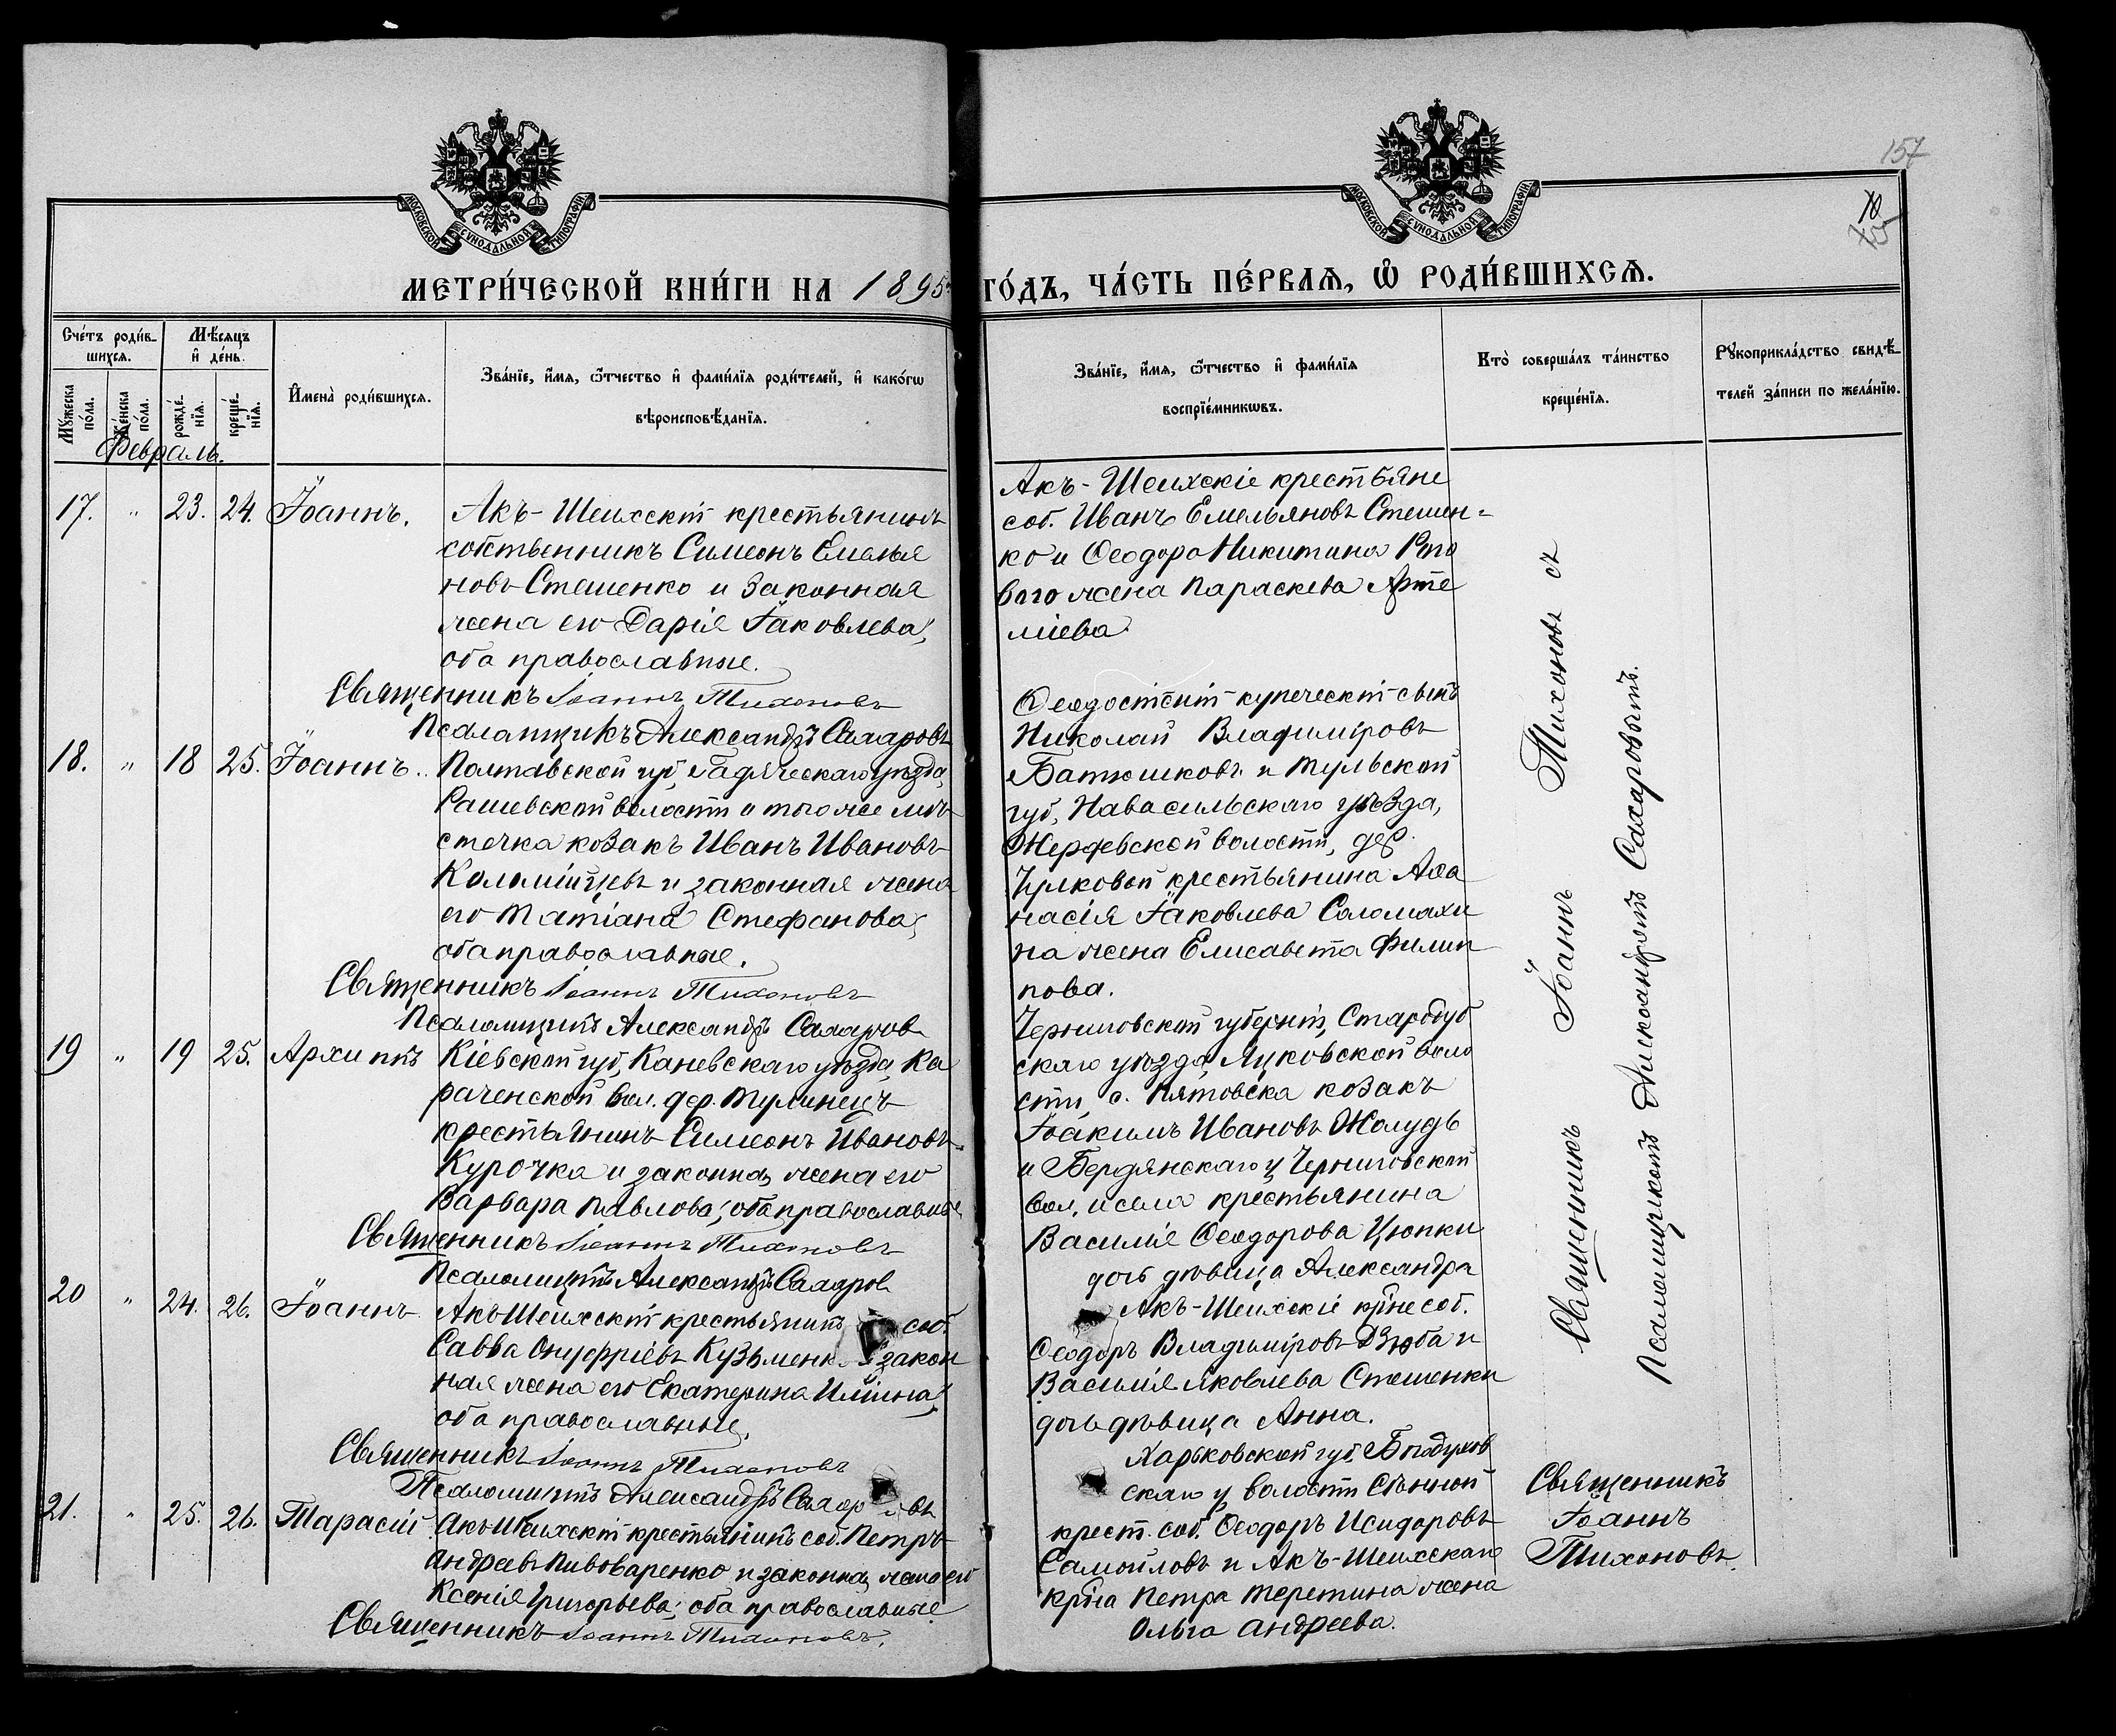 157
10
МОСКОВСКОЙ СѴНОДАЛЬНОЙ ТИПОГРАФІИ
МОСКОВСКОЙ СѴНОДАЛЬНОЙ ТИПОГРАФІИ
МЕТРИ́ЧЕСКОЙ КНИ́ГИ НА 1895
ГО́ДЪ, ЧА́СТЬ ПЕ́РВАѦ, Ѽ РОДИ́ВШИХСѦ.
Сче́тъ роди́в-
шихсѧ.
Мѣ́сѧцъ
и҆ де́нь.
Мꙋ́жеска
по́ла.
Же́нска
по́ла.
рожде́-
нїѧ.
креще́-
нїѧ.
И҆мена̀ роди́вшихсѧ.
Зва́нїе, и҆́мѧ, ѻ҆́тчество и҆ фами́лїѧ роди́телей, и҆ како́гѡ
вѣроисповѣ́данїѧ.
Зва́нїе, и҆́мѧ, ѻ҆́тчество и҆ фами́лїѧ
воспрїе́мникѡвъ.
Кто̀ соверша́лъ та́инство
креще́нїѧ.
Рꙋкоприкла́дство свидѣ́-
телей за́писи по жела́нїю.
Февраль.
17. " 23. 24. Іоаннъ.
Акъ-Шеихскій крестьянинъ
собственникъ Симеонъ Емелья
новъ Стешенко и законная
жена его Дарія Іаковлева,
оба православные.
Священникъ Іоаннъ Тихоновъ
Псаломщикъ Александръ Сахаровъ
Акъ-Шеихскіе крестьяне
соб. Иванъ Емельяновъ Стешен-
ко и Ѳеодора Никитина Рого
вого жена Параскева Арте
міева.
18. " 18 25. Іоаннъ.
Полтавской губ, Гадячскаго уѣзда,
Рашевской волости и того же мѣ
стечка козакъ Иванъ Ивановъ
Коломійцевъ и законная жена
его Татіана Стефанова,
оба православные.
Священникъ Іоаннъ Тихоновъ
Псаломщикъ Александръ Сахаров
Ѳеодосійскій купеческій сынъ
Николай Владиміровъ
Батюшковъ и Тульской
губ, Навасильскаго уѣзда,
Жердевской волости, дер.
Чулковой крестьянина Аѳа
насія Іаковлева Соломахи
на жена Елисавета Филип
пова.
19 " 19 25. Архипъ
Кіевской губ, Каневскаго уѣзда, Ка
раченской вол. дер. Тулинецъ
крестьянинъ Симеонъ Ивановъ
Курочка и законная жена его
Варвара Павлова, оба православные
Священникъ Іоаннъ Тихоновъ
Псаломщикъ Александръ Сахаров
Черниговской губерніи, Стародуб
скаго уѣзда, Луковской воло
сти, с. Пятовска козакъ
Іоакимъ Ивановъ Жолудь
и Бердянскаго у Черниговской
вол, и села крестьянина
Василія Ѳеодорова Цюпки
дочь дѣвица Александра
20 " 24. 26. Іоаннъ
Акъ-Шеихскій крестьянинъ соб.
Савва Онуфріевъ Кузьменк и закон
ная жена его Екатерина Иліина,
оба православные.
Священникъ Іоаннъ Тихоновъ
Псаломщикъ Александръ Сахаровъ
Акъ-Шеихскіе кр̃не соб.
Ѳеодоръ Владиміровъ Дзюба и
Василія Яковлева Стешенки
дочь дѣвица Анна.
21. " 25. 26. Тарасій
Акъ-Шеихскій крестьянинъ соб. Петръ
Андреевъ Пивоваренко и законная жена его
Ксенія Григорьева, оба православные
Священникъ Іоаннъ Тихоновъ.
Харьковской губ. Богодухов
скаго у волости Сѣнной
крест. соб. Ѳеодоръ Исидоровъ
Самойловъ и Акъ-Шеихскаго
кр̃на Петра Теретина жена
Ольга Андреева.
Священникъ Іоаннъ Тихоновъ съ
Псаломщикомъ Александромъ Сахаровымъ.
Священникъ
Іоаннъ
Тихоновъ.